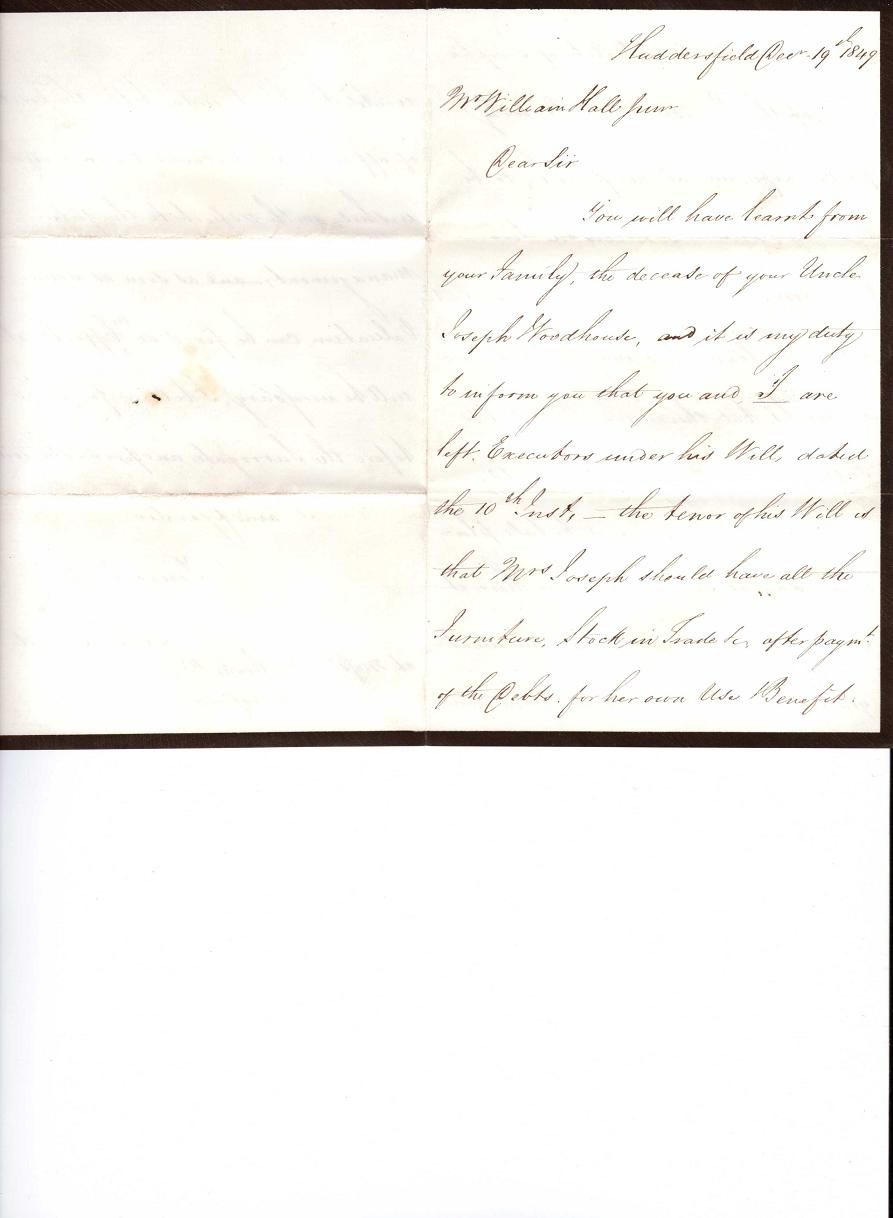 Huddersfield Decr. 19th 1849
Mr William Hall Junr
Dear Sir
You will have learnt from
your Family, the decease of your Uncle
Joseph Woodhouse, and it is my duty
to inform you that you and I are
left Executors under his Will, dated
the 10th Inst, — the tenor of his Will is
that Mrs Joseph should have all the
Furniture, Stock in Trade &c, after paymt.
of the Debts, for her own Use & Benefit.